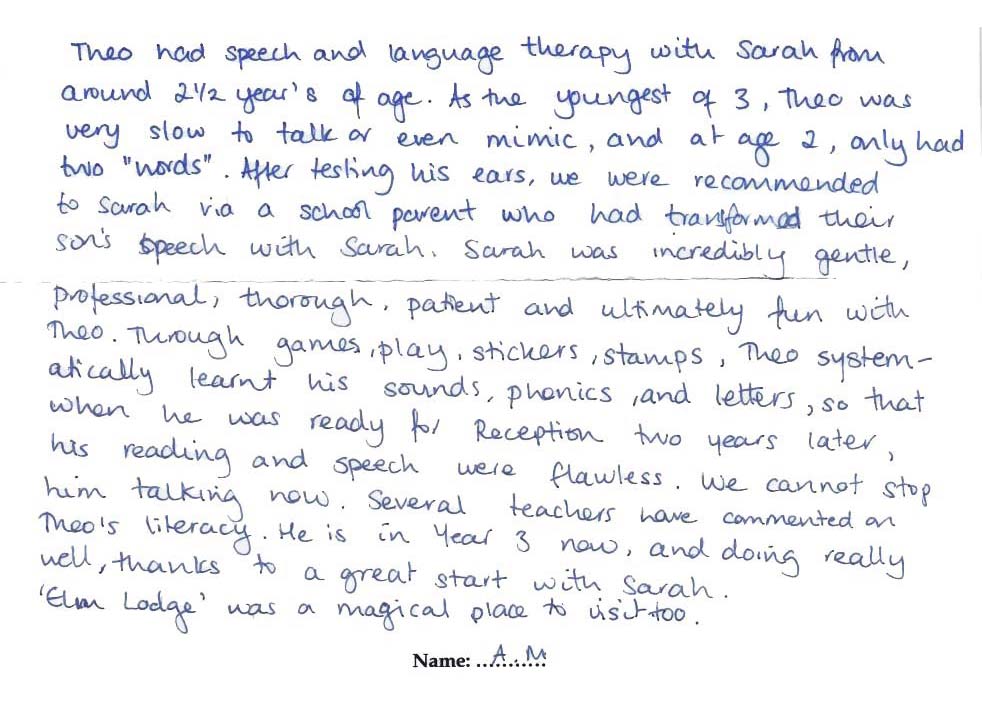 Theo had speech and language therapy with Sarah from
around 2 1/2 year's of age. As the youngest of 3, Theo was
very slow to talk or even mimic, and at age 2, only had
two "words". After testing his ears, we were recommended
to Sarah via a school parent who had transformed their
son's speech with Sarah. Sarah was incredibly gentle,
professional, thorough, patient and ultimately fun with
Theo. Through games, play, stickers, stamps, Theo system-
atically learnt his sounds, phonics, and letters, so that
when he was ready for Reception two years later,
his reading and speech were flawless. We cannot stop
him talking now. Several teachers have commented on
Theo's literacy. He is in Year 3 now, and doing really
well, thanks to a great start with Sarah.
'Elm Lodge' was a magical place to visit too.
Name: ..A...M